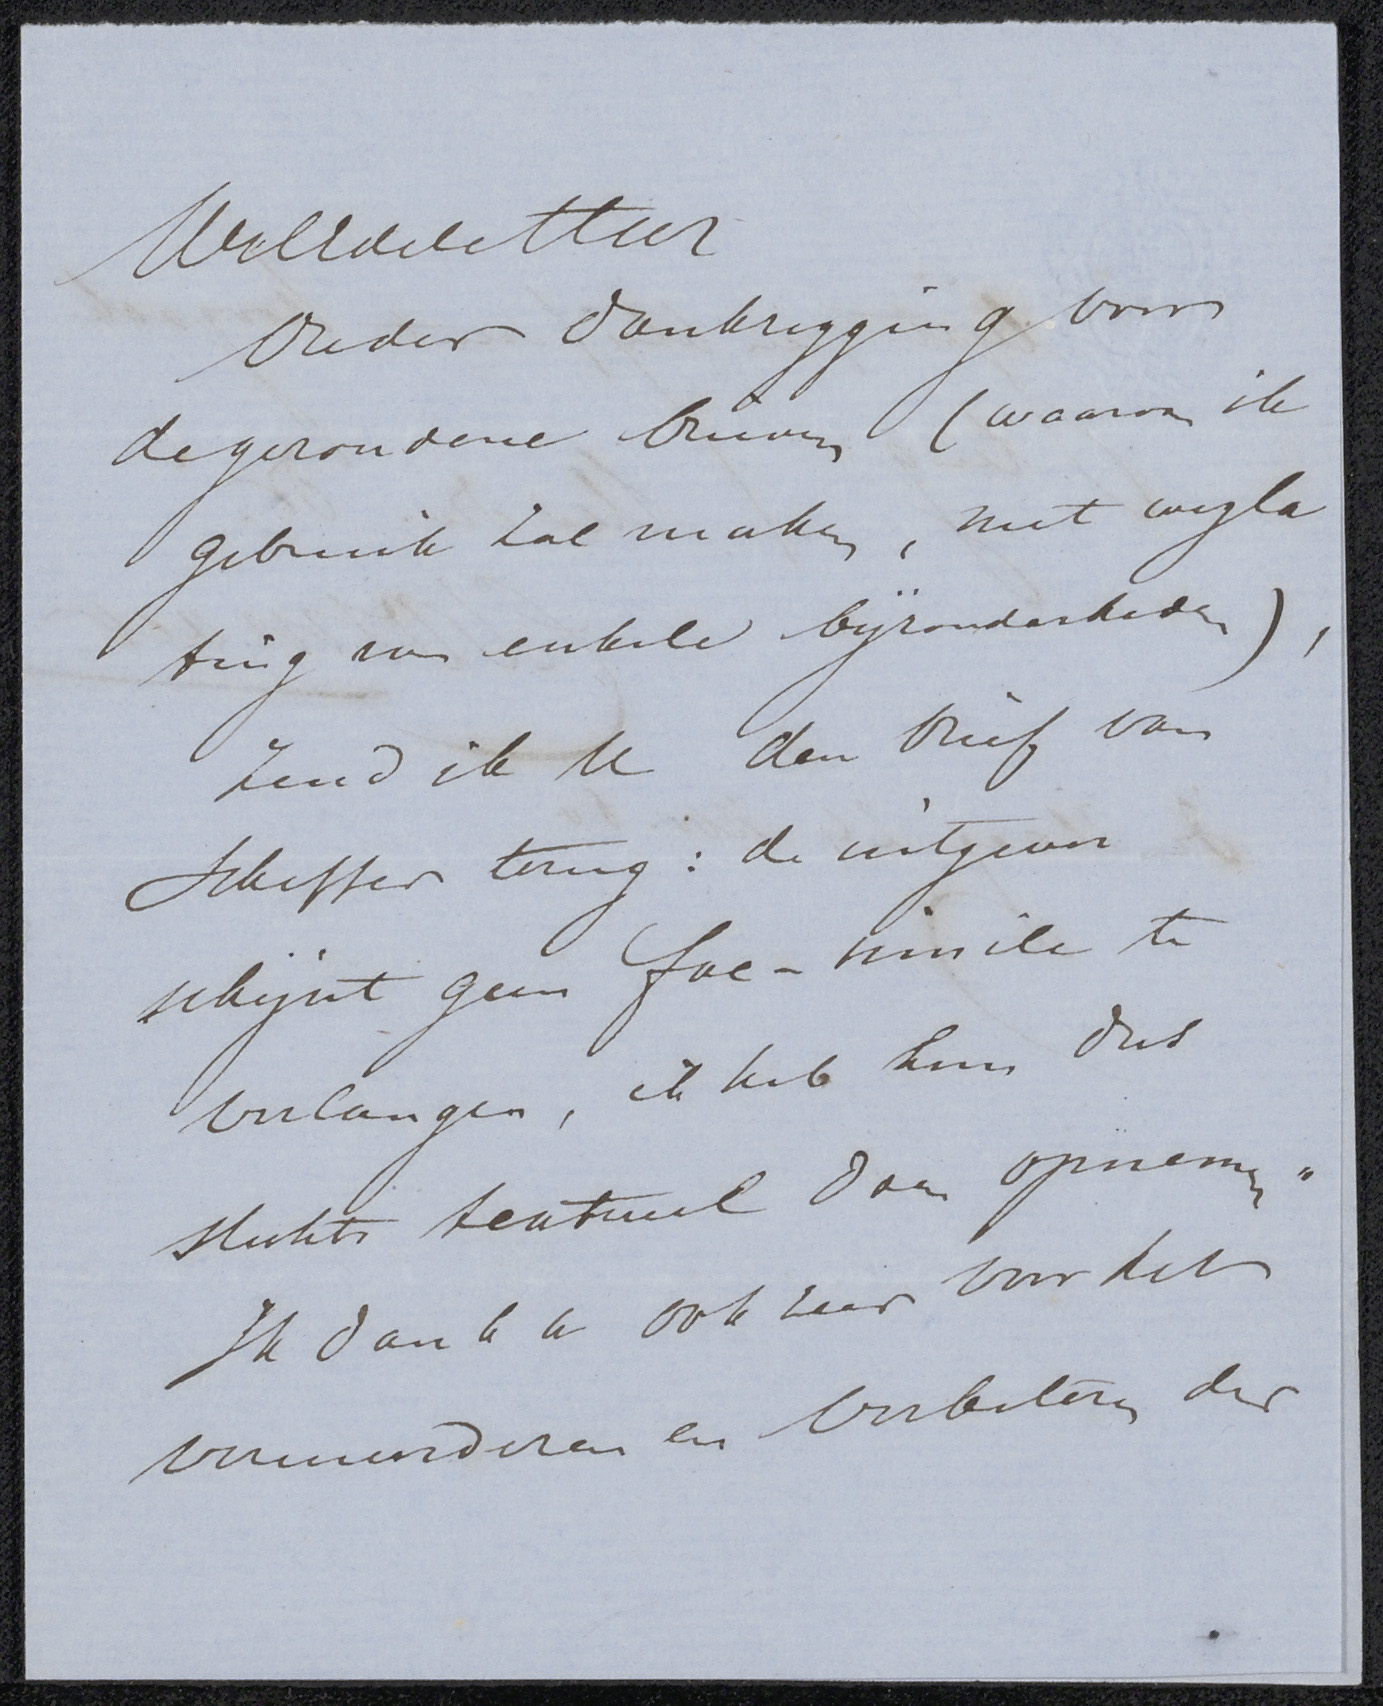 WelEdele Heer
Onder dankzegging voor
de gezondene brieven (waarvan ik
gebruik zal maken, met wegla
ting van enkele bijzonderheden),
zend ik U den brief van
Scheffer terug: de uitgever
schijnt geen fac-simile te
verlangen, ik heb hem dus
slechts textueel doen opnemen.
Ik dank u ook zeer voor het
vermeerderen en verbeteren der